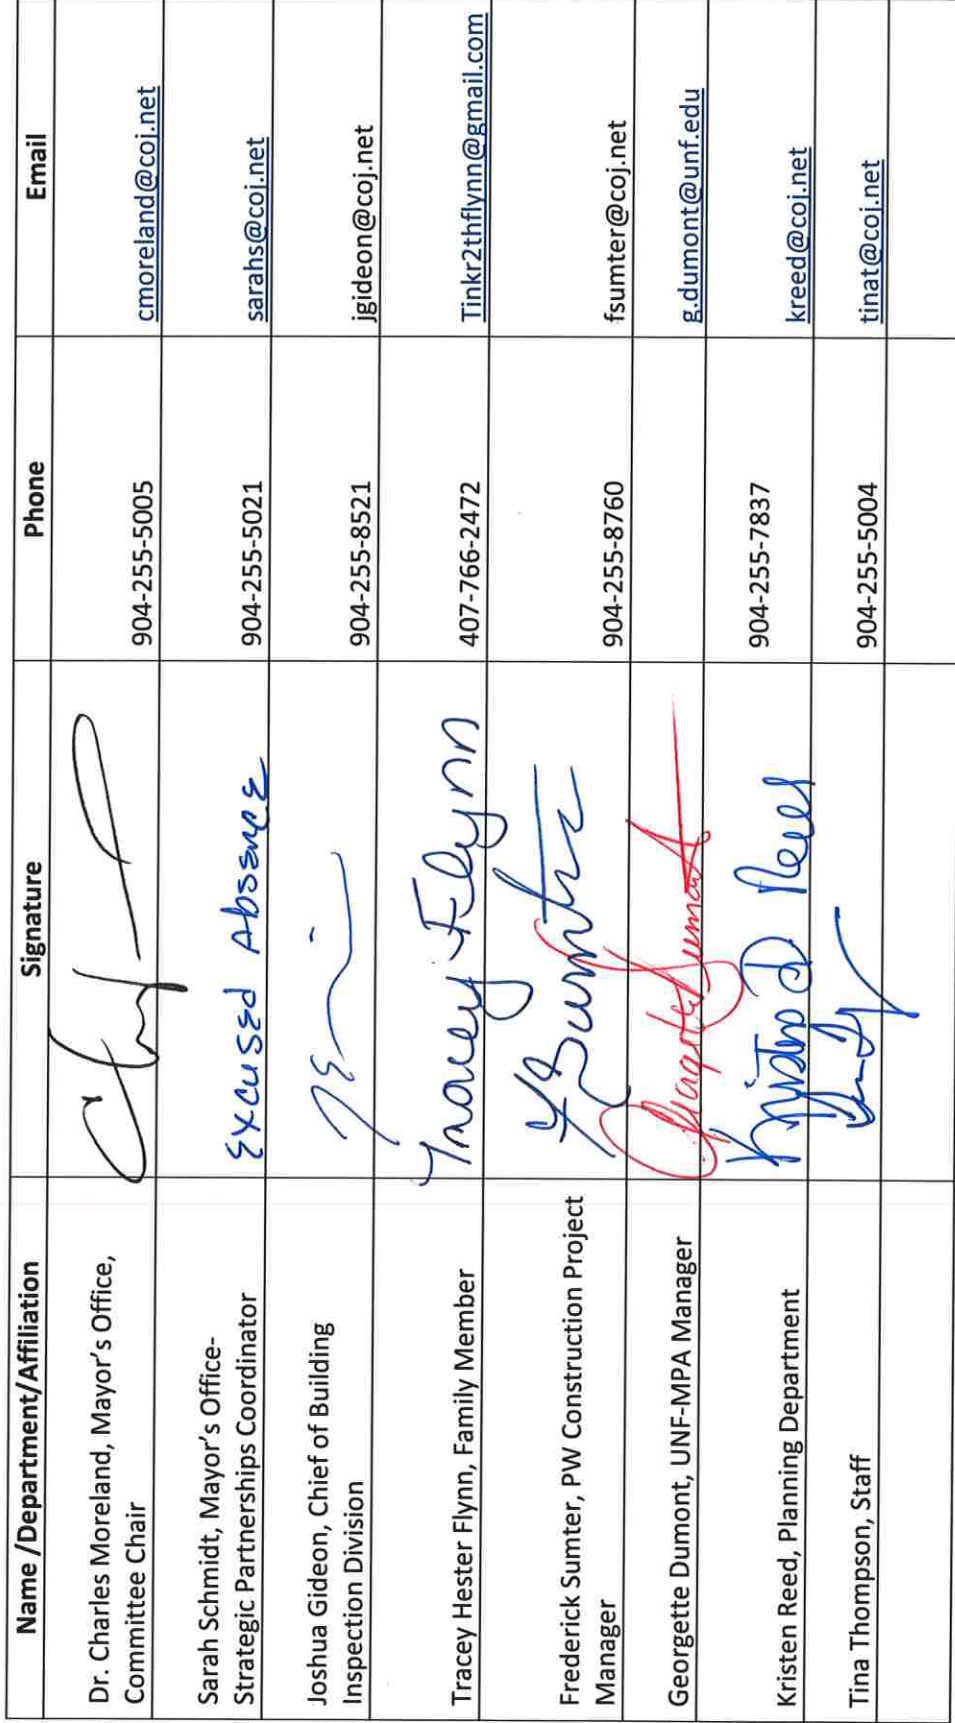 Name /Department/Affiliation Signature Phone Email
Dr. Charles Moreland, Mayor's Office,
Committee Chair 904-255-5005 cmoreland@coj.net
Sarah Schmidt, Mayor's Office-
Strategic Partnerships Coordinator Excused Absence 904-255-5021 sarahs@coj.net
Joshua Gideon, Chief of Building
Inspection Division 904-255-8521 jgideon@coj.net
Tracey Hester Flynn, Family Member Tracey Flynn 407-766-2472 Tinkr2thflynn@gmail.com
Frederick Sumter, PW Construction Project
Manager F Sumter 904-255-8760 fsumter@coj.net
Georgette Dumont, UNF-MPA Manager g.dumont@unf.edu
Kristen Reed, Planning Department Kristen D Reed 904-255-7837 kreed@coj.net
Tina Thompson, Staff 904-255-5004 tinat@coj.net